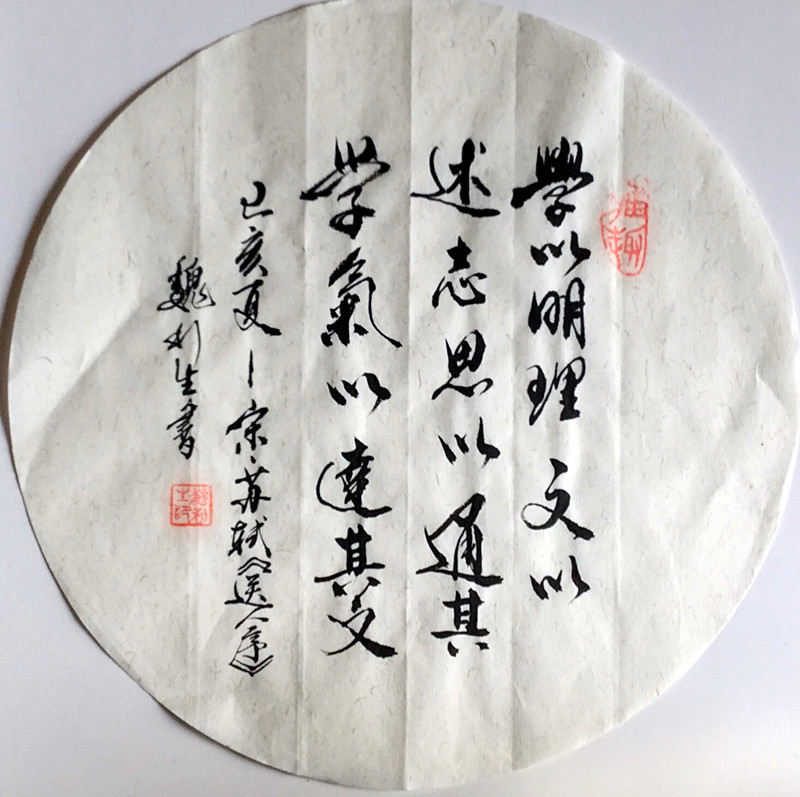 學以明理文以
述志思以通其
学氣以達其文
己亥夏－宋·苏轼《送人序》
魏利生書